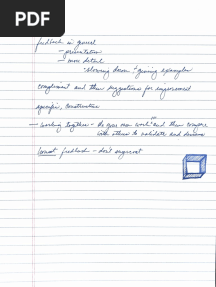 PDF
feedback in general
- presentation
- more detail
- slowing down + giving examples
compliment and then suggestions for improvement
specific, constructive
- working together - do your own work 1st and then compare
with others to validate and discuss
honest feedback - don't sugarcoat